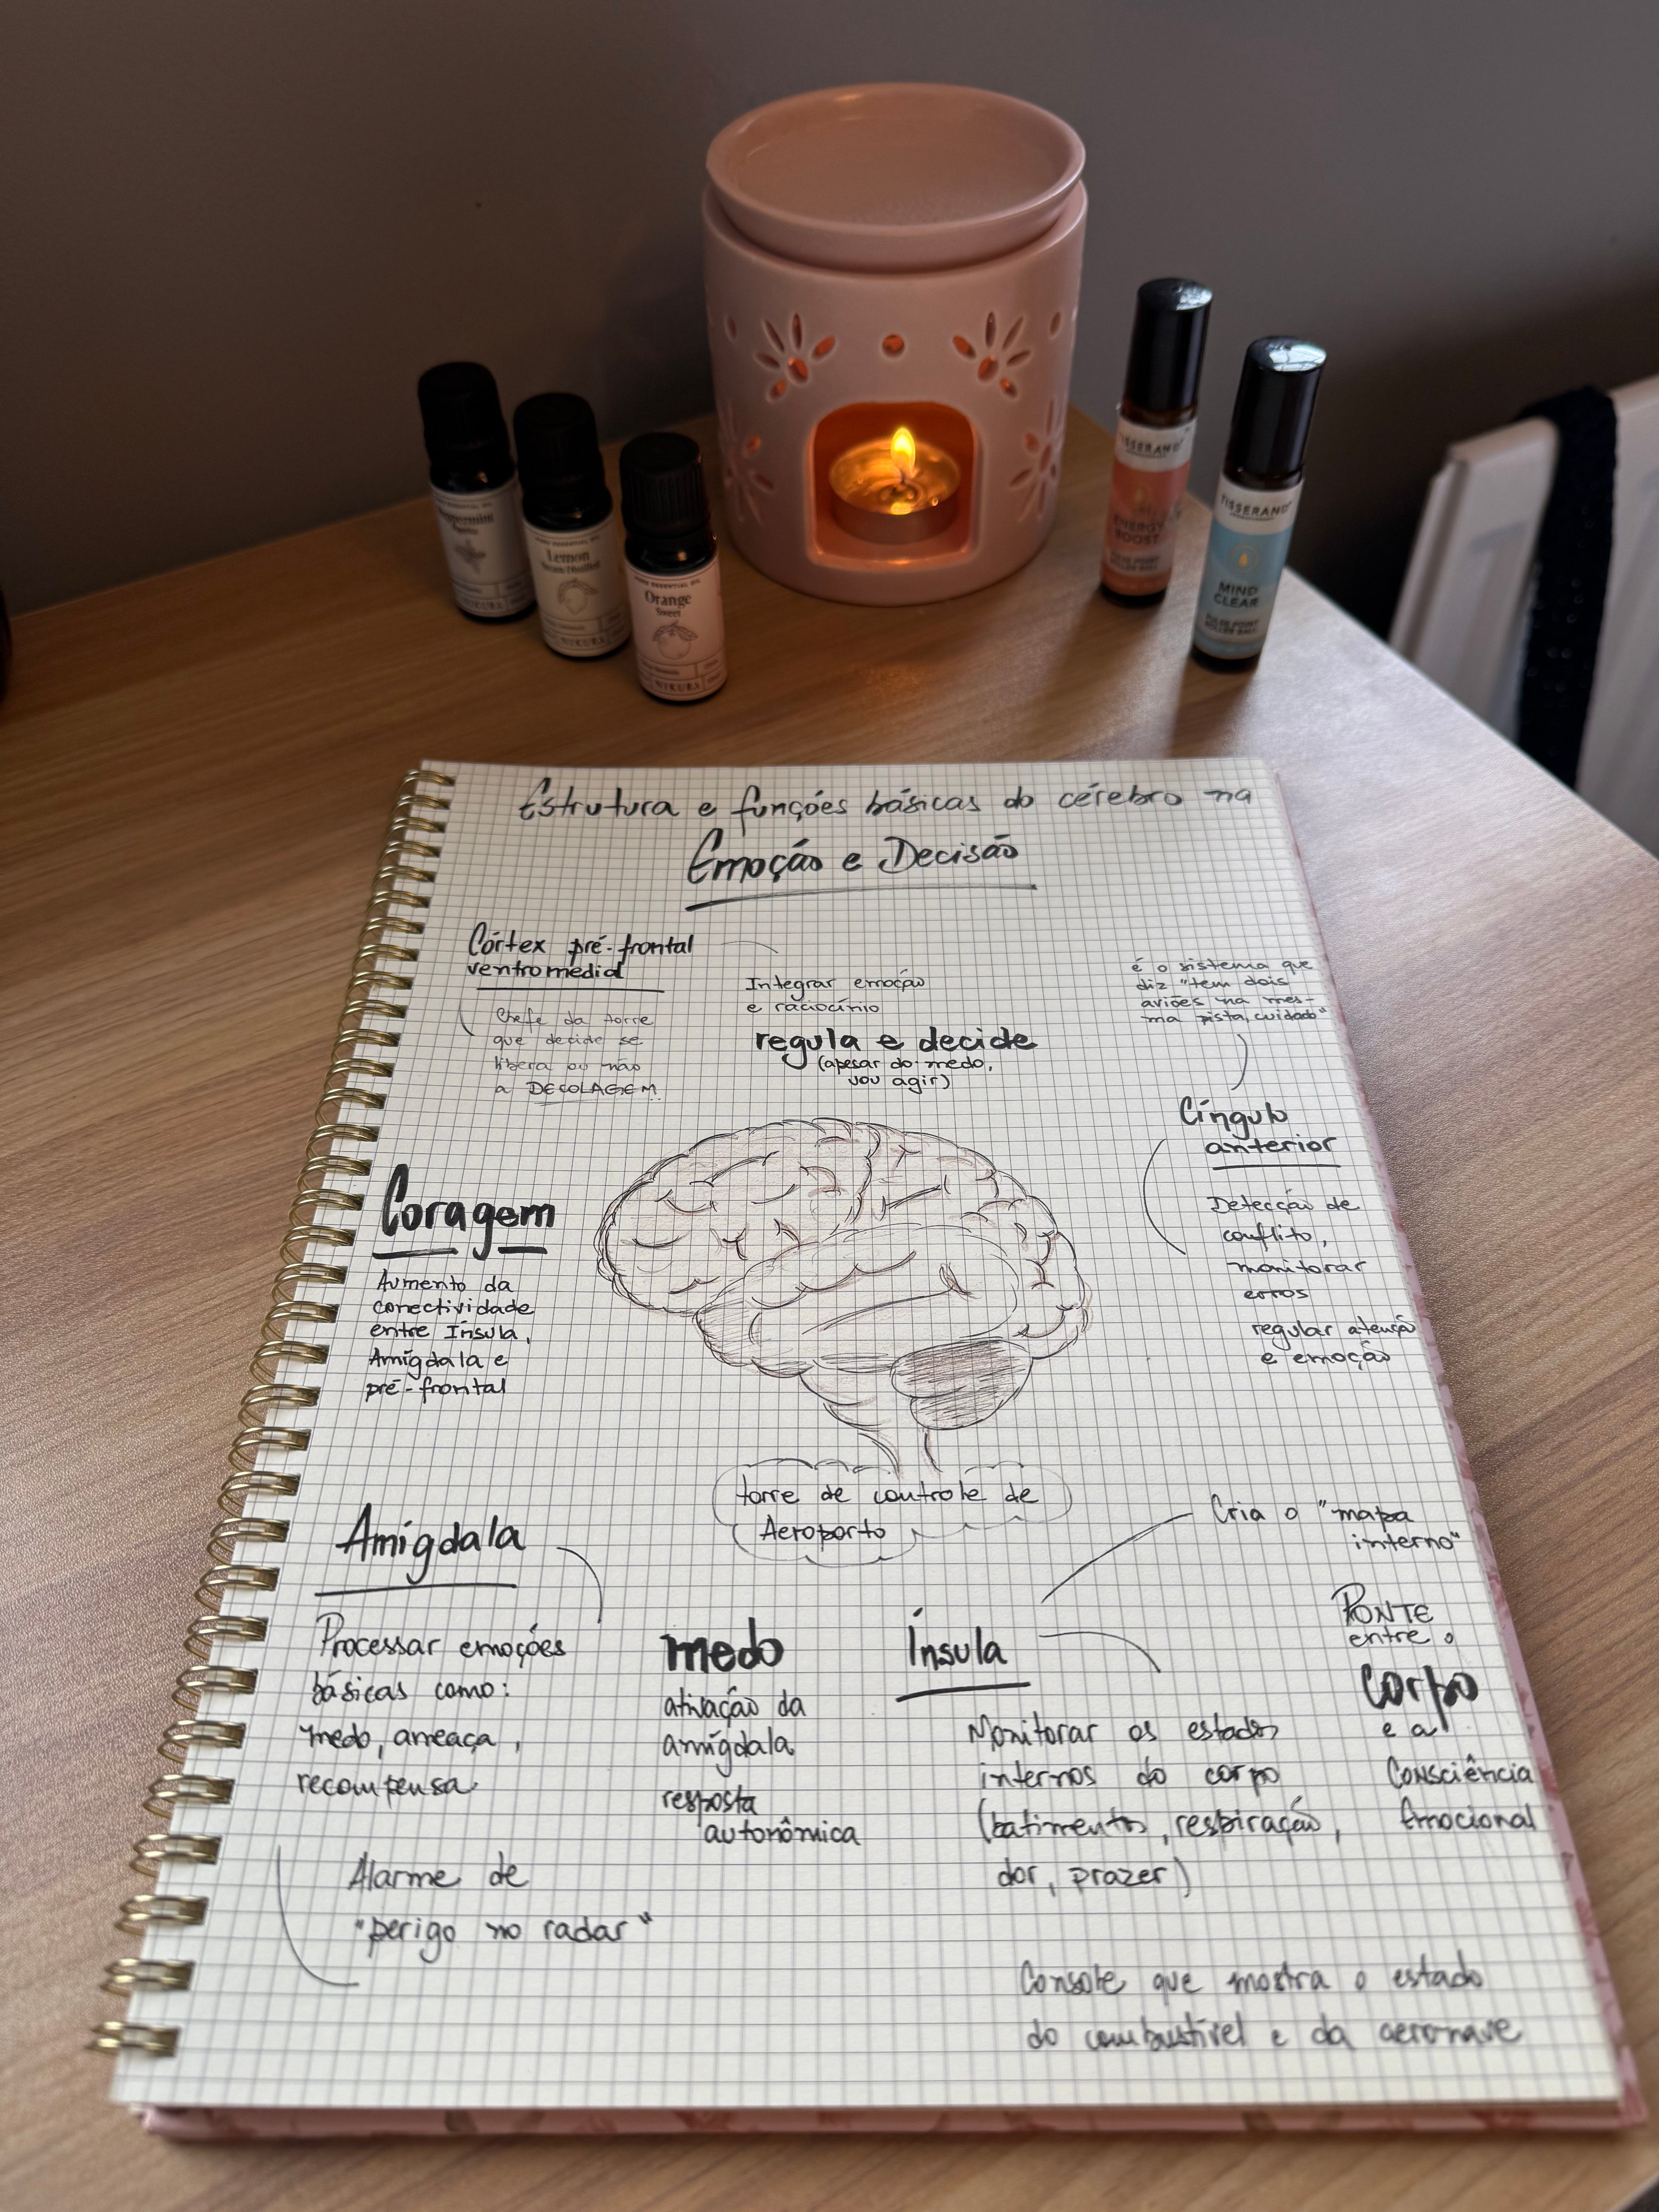 Peppermint
PURE ESSENTIAL OIL
Lemon
NIKURA
PURE ESSENTIAL OIL
Orange
Sweet
NIKURA
TISSERAND
ENERGY
BOOST
PULSE POINT
ROLLER BALL
TISSERAND
MIND
CLEAR
PULSE POINT
ROLLER BALL
Estrutura e funções básicas do cérebro na
Emoção e Decisão
Córtex pré-frontal
ventromedial
Chefe da torre
que decide se
libera ou não
a DECOLAGEM
Integrar emoção
e raciocínio
regula e decide
(apesar do medo,
vou agir)
é o sistema que
diz "tem dois
aviões na mes-
ma pista, cuidado"
Cíngulo
anterior
Detecção de
conflito,
monitorar
erros
regular atenção
e emoção
Coragem
Aumento da
conectividade
entre Ínsula,
Amígdala e
pré-frontal
torre de controle de
Aeroporto
Amígdala
Processar emoções
básicas como:
medo, ameaça,
recompensa
Alarme de
"perigo no radar"
medo
ativação da
amígdala
resposta
autonômica
Ínsula
Monitorar os estados
internos do corpo
(batimentos, respiração,
dor, prazer)
Cria o "mapa
interno"
PONTE
entre o
Corpo
e a
Consciência
Emocional
Console que mostra o estado
do combustível e da aeronave